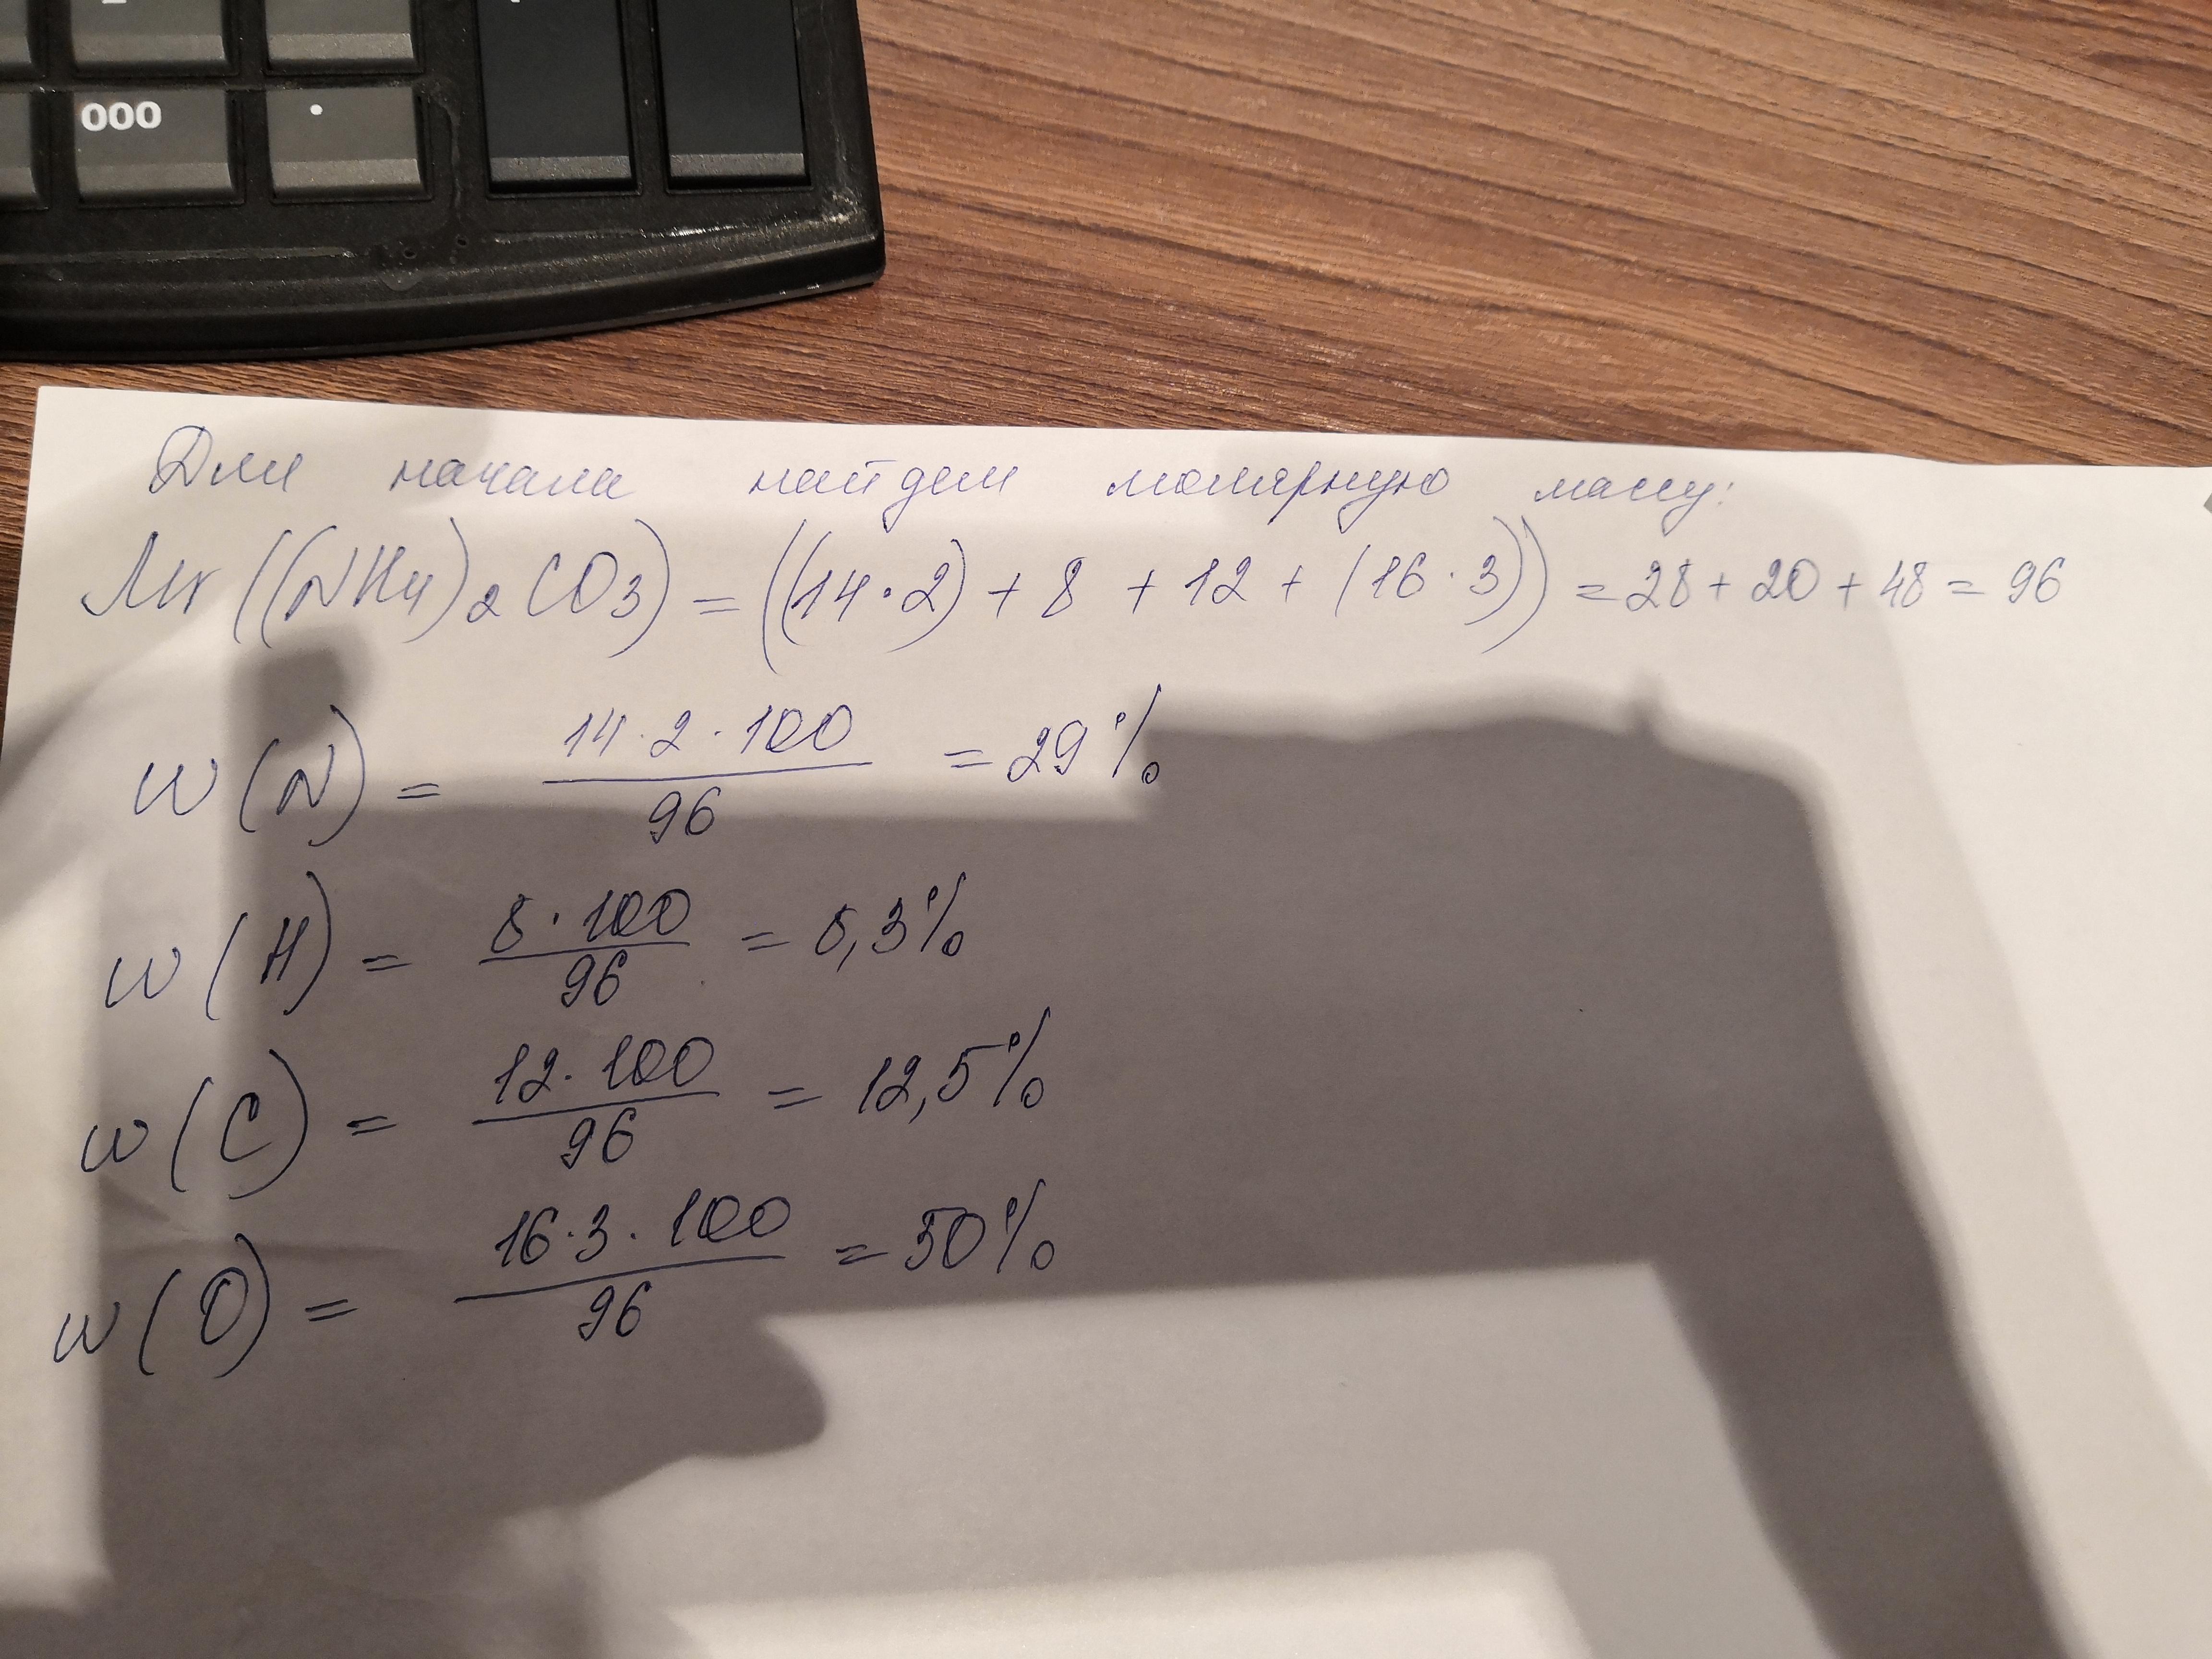 000 .
Для начала найдем молярную массу:
Mr ((NH4)2CO3) = ((14·2) + 8 + 12 + (16·3)) = 28 + 20 + 48 = 96
w(N) = 14·2·100 / 96 = 29%
w(H) = 8·100 / 96 = 8,3%
w(C) = 12·100 / 96 = 12,5%
w(O) = 16·3·100 / 96 = 50%